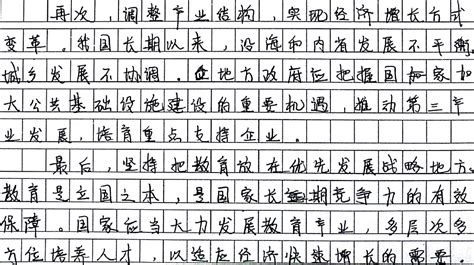 再次，调整产业结构，实现经济增长方式
变革。我国长期以来，沿海和内省发展不平衡，
城乡发展不协调。各地方政府应把握国家加
大公共基础设施建设的重要机遇，推动第三产
业发展，培育重点支持企业。
最后，坚持把教育放在优先发展战略地方。
教育是立国之本，是国家长期竞争力的有效
保障。国家应当大力发展教育产业，多层次多
方位培养人才，以适应经济快速增长的需要。